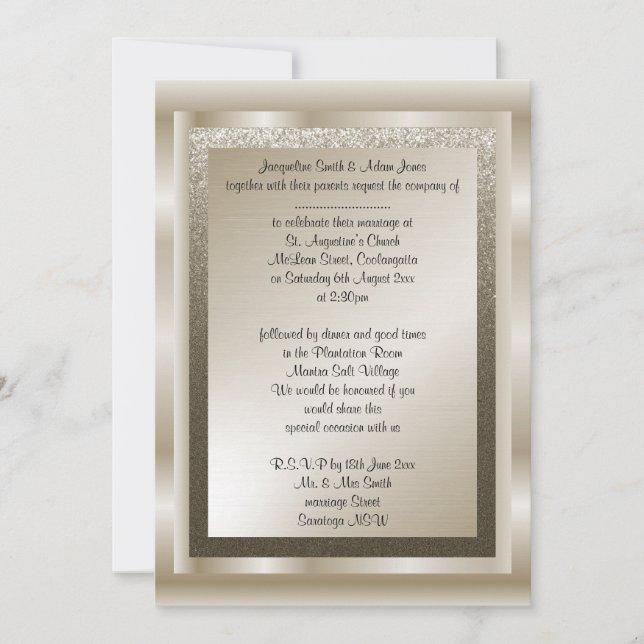 Jacqueline Smith & Adam Jones
together with their parents request the company of
...........................
to celebrate their marriage at
St. Augustine's Church
McLean Street, Coolangatta
on Saturday 6th August 2xxx
at 2:30pm
followed by dinner and good times
in the Plantation Room
Mantra Salt Village
We would be honoured if you
would share this
special occasion with us
R.S.V.P by 18th June 2xxx
Mr. & Mrs Smith
marriage Street
Saratoga NSW